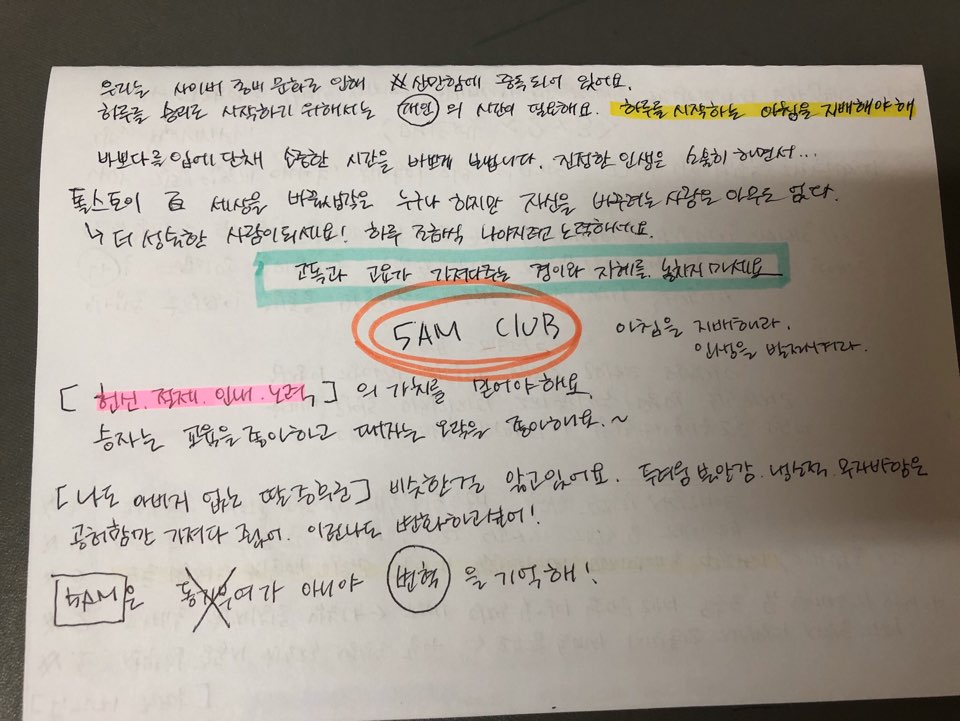 우리는 사이버 좀비 문화로 인해 ※산만함에 중독되어 있어요.
하루를 승리로 시작하기 위해서는 대인의 시간이 필요해요. 하루를 시작하는 아침을 지배해야해
바쁘다를 입에 단채 소중한 시간을 바쁘게 보냅니다. 진정한 인생은 소홀히 하면서...
톨스토이 曰 세상을 바꿀생각은 누구나 하지만 자신을 바꾸려는 사람은 아무도 없다.
↳ 더 성숙한 사람이되세요! 하루 조금씩 나아지려고 노력하세요.
고독과 고요가 가져다주는 경이와 지혜를 놓치지 마세요
5AM CLUB
아침을 지배해라.
인생을 발전시켜라.
[헌신. 절제. 인내. 노력,]의 가치를 믿어야해요.
승자는 교육을 좋아하고 패자는 오락을 좋아해요.~
[나도 아버지 없는 딸증후군] 비슷한걸 앓고있어요. 두려움 불안감. 냉소적. 목자방양은
공허함만 가져다 줬어. 이런나도 변화하고싶어!
5AM은 동기부여가 아니야 변혁을 기억해!